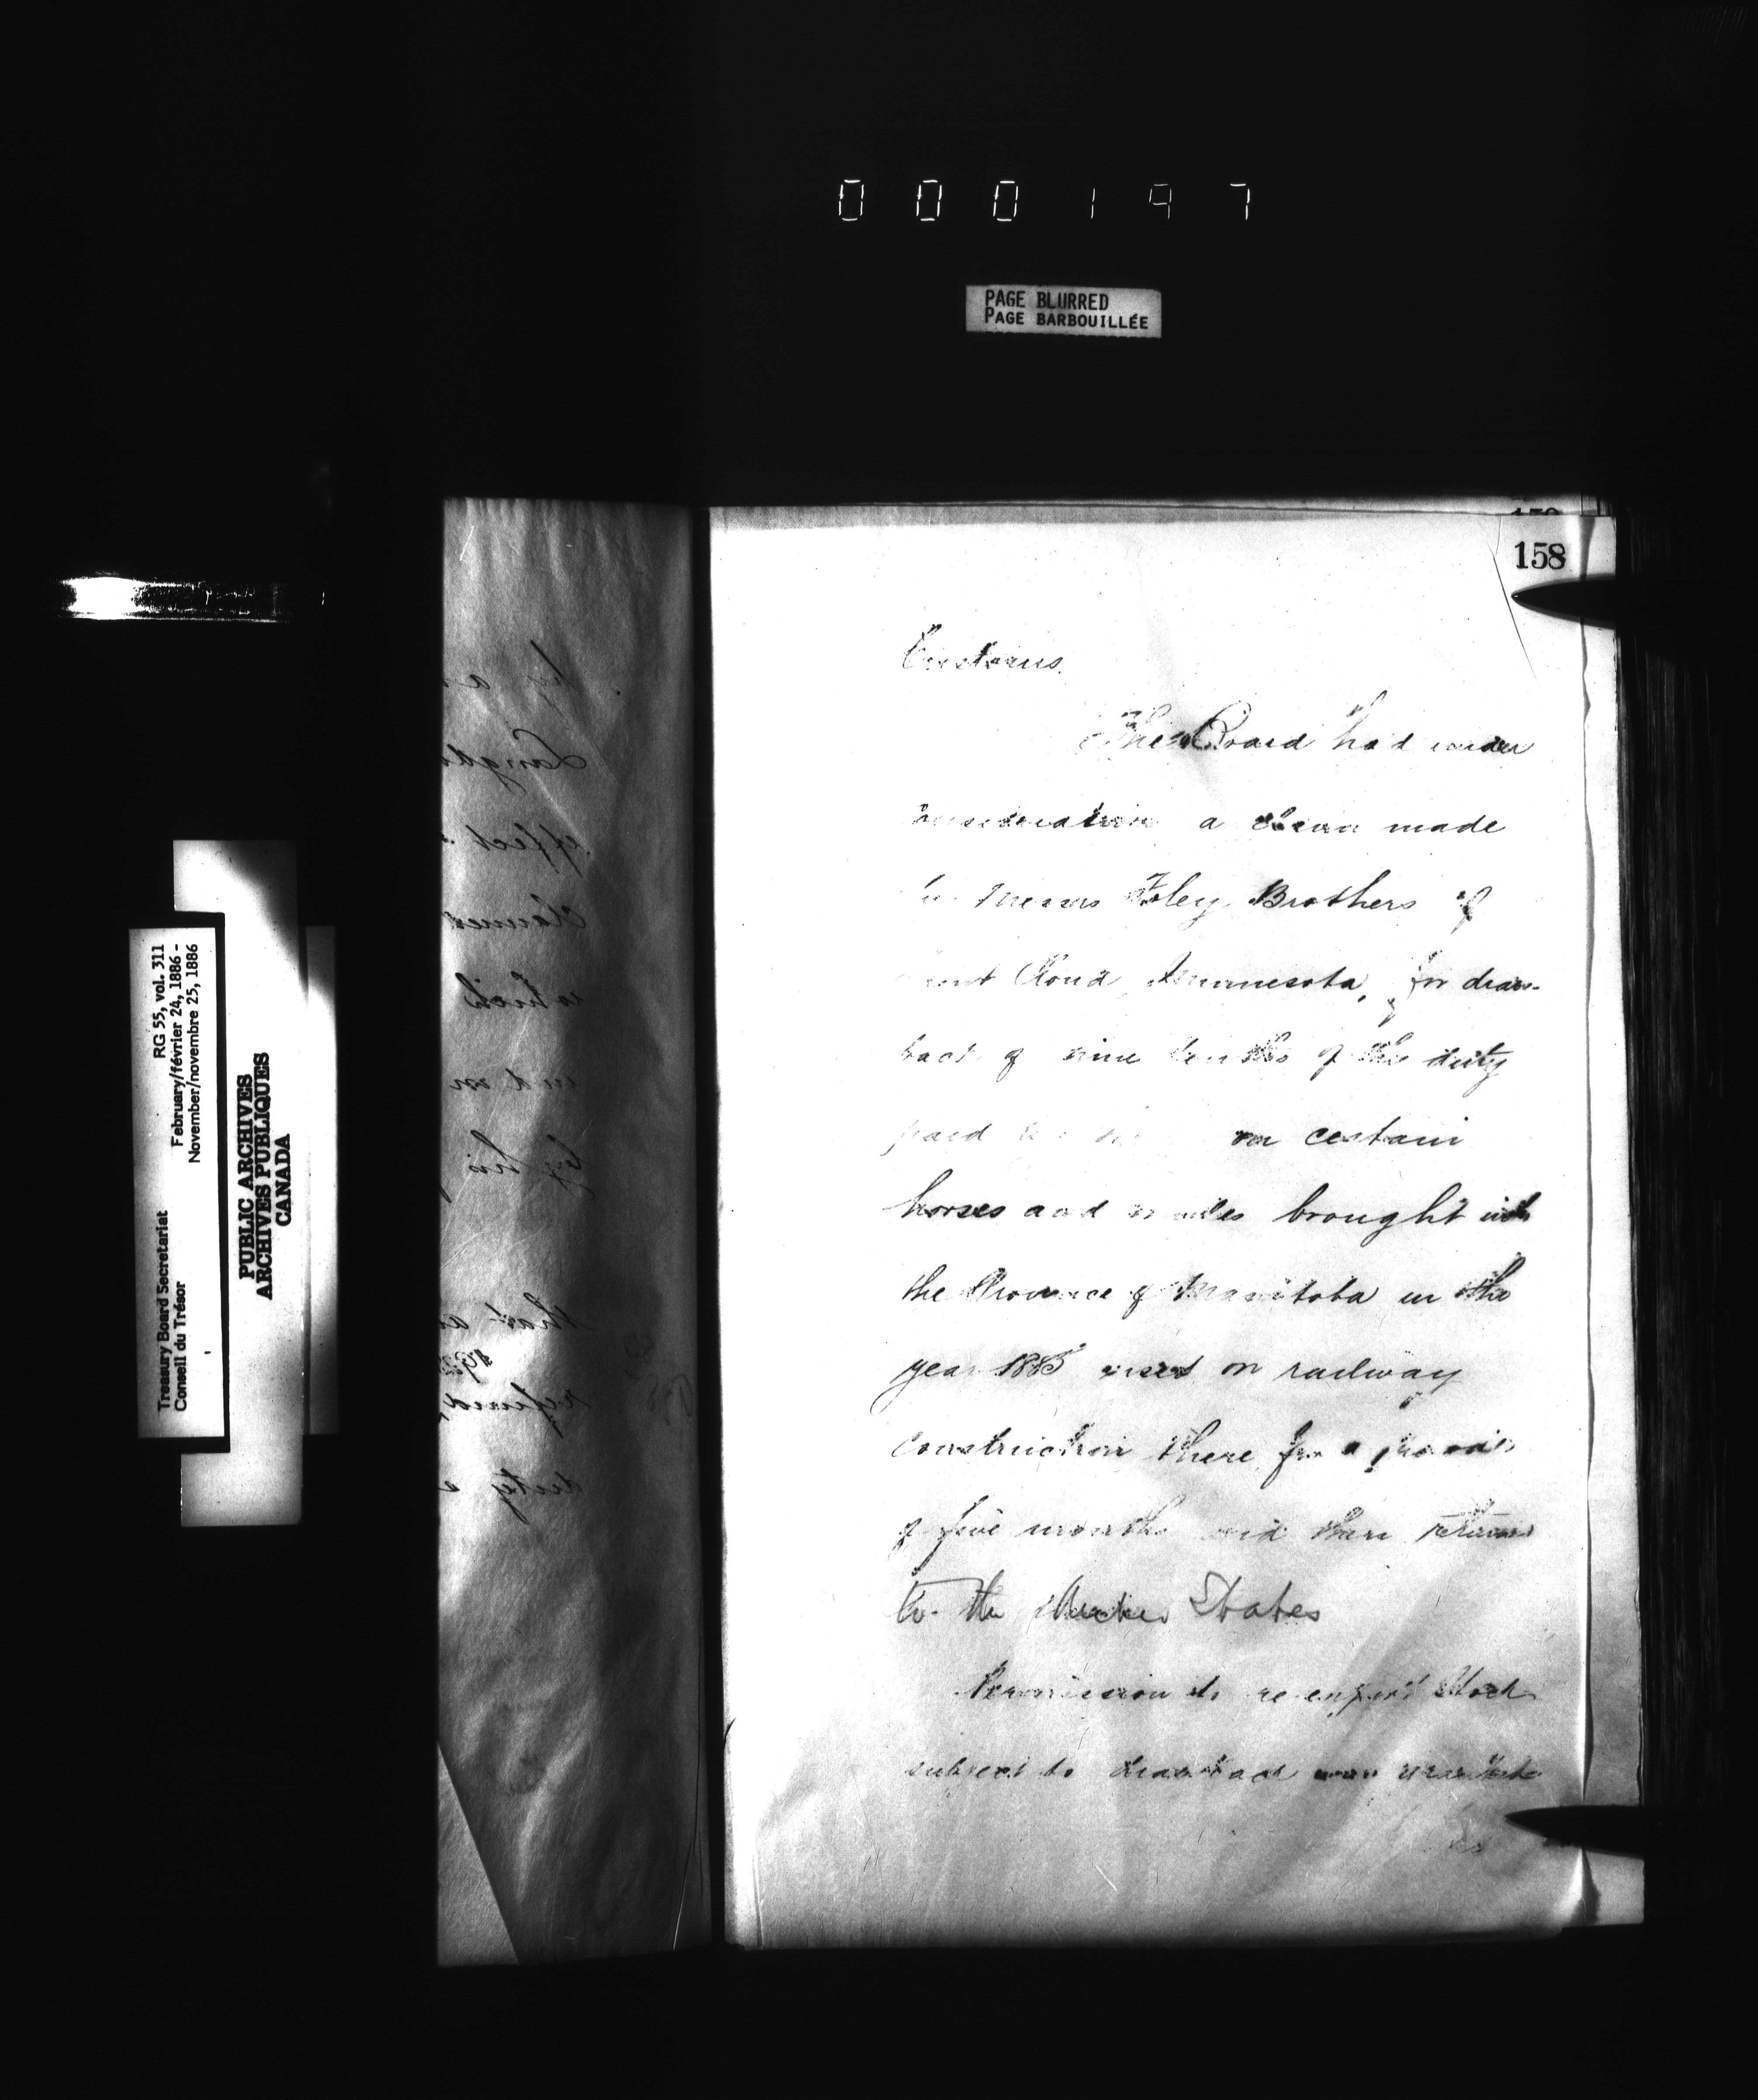 000197
PAGE BLURRED
PAGE BARBOUILLÉE
158
Customs.
The Board had under
consideration a claim made
by Messrs Foley Brothers of
Saint Cloud, Minnesota, for draw-
back of nine tenths of the duty
paid on certain
horses and mules brought into
the Province of Manitoba in the
year 1885 used on railway
construction there for a period
of five months and then returned
to the United States
Permission to re export stock
subject to drawback was
RG 55, vol. 311
February/février 24, 1886 -
November/novembre 25, 1886
Treasury Board Secretariat
Conseil du Trésor
PUBLIC ARCHIVES
ARCHIVES PUBLIQUES
CANADA